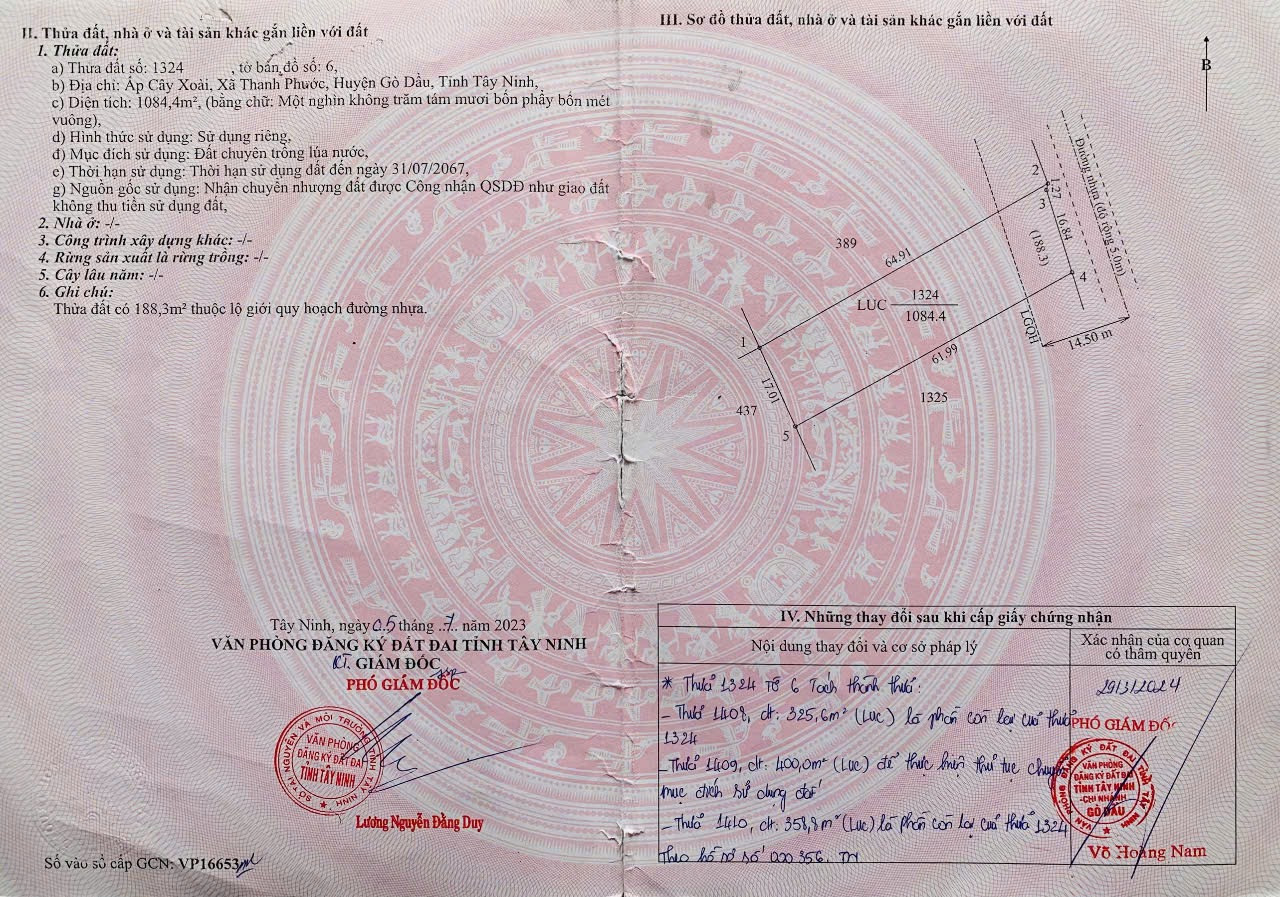 II. Thửa đất, nhà ở và tài sản khác gắn liền với đất
1. Thửa đất:
a) Thửa đất số: 1324 , tờ bản đồ số: 6,
b) Địa chỉ: Ấp Cây Xoài, Xã Thanh Phước, Huyện Gò Dầu, Tỉnh Tây Ninh,
c) Diện tích: 1084,4m², (bằng chữ: Một nghìn không trăm tám mươi bốn phẩy bốn mét
vuông),
d) Hình thức sử dụng: Sử dụng riêng,
đ) Mục đích sử dụng: Đất chuyên trồng lúa nước,
e) Thời hạn sử dụng: Thời hạn sử dụng đất đến ngày 31/07/2067,
g) Nguồn gốc sử dụng: Nhận chuyển nhượng đất được Công nhận QSDĐ như giao đất
không thu tiền sử dụng đất,
2. Nhà ở: -/-
3. Công trình xây dựng khác: -/-
4. Rừng sản xuất là rừng trồng: -/-
5. Cây lâu năm: -/-
6. Ghi chú:
Thửa đất có 188,3m² thuộc lộ giới quy hoạch đường nhựa.
Tây Ninh, ngày 05 tháng .7.. năm 2023
VĂN PHÒNG ĐĂNG KÝ ĐẤT ĐAI TỈNH TÂY NINH
KT. GIÁM ĐỐC
PHÓ GIÁM ĐỐC
SỞ TÀI NGUYÊN VÀ MÔI TRƯỜNG TỈNH TÂY NINH
VĂN PHÒNG
ĐĂNG KÝ ĐẤT ĐAI
TỈNH TÂY NINH
Lương Nguyễn Đằng Duy
Số vào sổ cấp GCN: VP16653
III. Sơ đồ thửa đất, nhà ở và tài sản khác gắn liền với đất
B
Đường nhựa (độ rộng 5.0m)
2
1.27
3
16.84
(188.3)
4
389
64.91
LUC
1324
1084.4
LGQH
14.50 m
1
61.99
17.01
1325
437
5
IV. Những thay đổi sau khi cấp giấy chứng nhận
Nội dung thay đổi và cơ sở pháp lý
Xác nhận của cơ quan
có thẩm quyền
* Thửa 1324 tờ 6 Tách thành thửa:
- Thửa 1408, dt: 325,6m² (LUC) là phần còn lại của thửa
1324
- Thửa 1409, dt: 400,0m² (LUC) để thực hiện thủ tục chuyển
mục đích sử dụng đất
- Thửa 1410, dt: 358,8m² (LUC) là phần còn lại của thửa 1324
Theo hồ sơ số 000356.
29/3/2024
PHÓ GIÁM ĐỐC
VĂN PHÒNG ĐĂNG KÝ ĐẤT ĐAI TỈNH TÂY NINH
VĂN PHÒNG
ĐĂNG KÝ ĐẤT ĐAI
TỈNH TÂY NINH
-CHI NHÁNH
GÒ DẦU
Võ Hoàng Nam